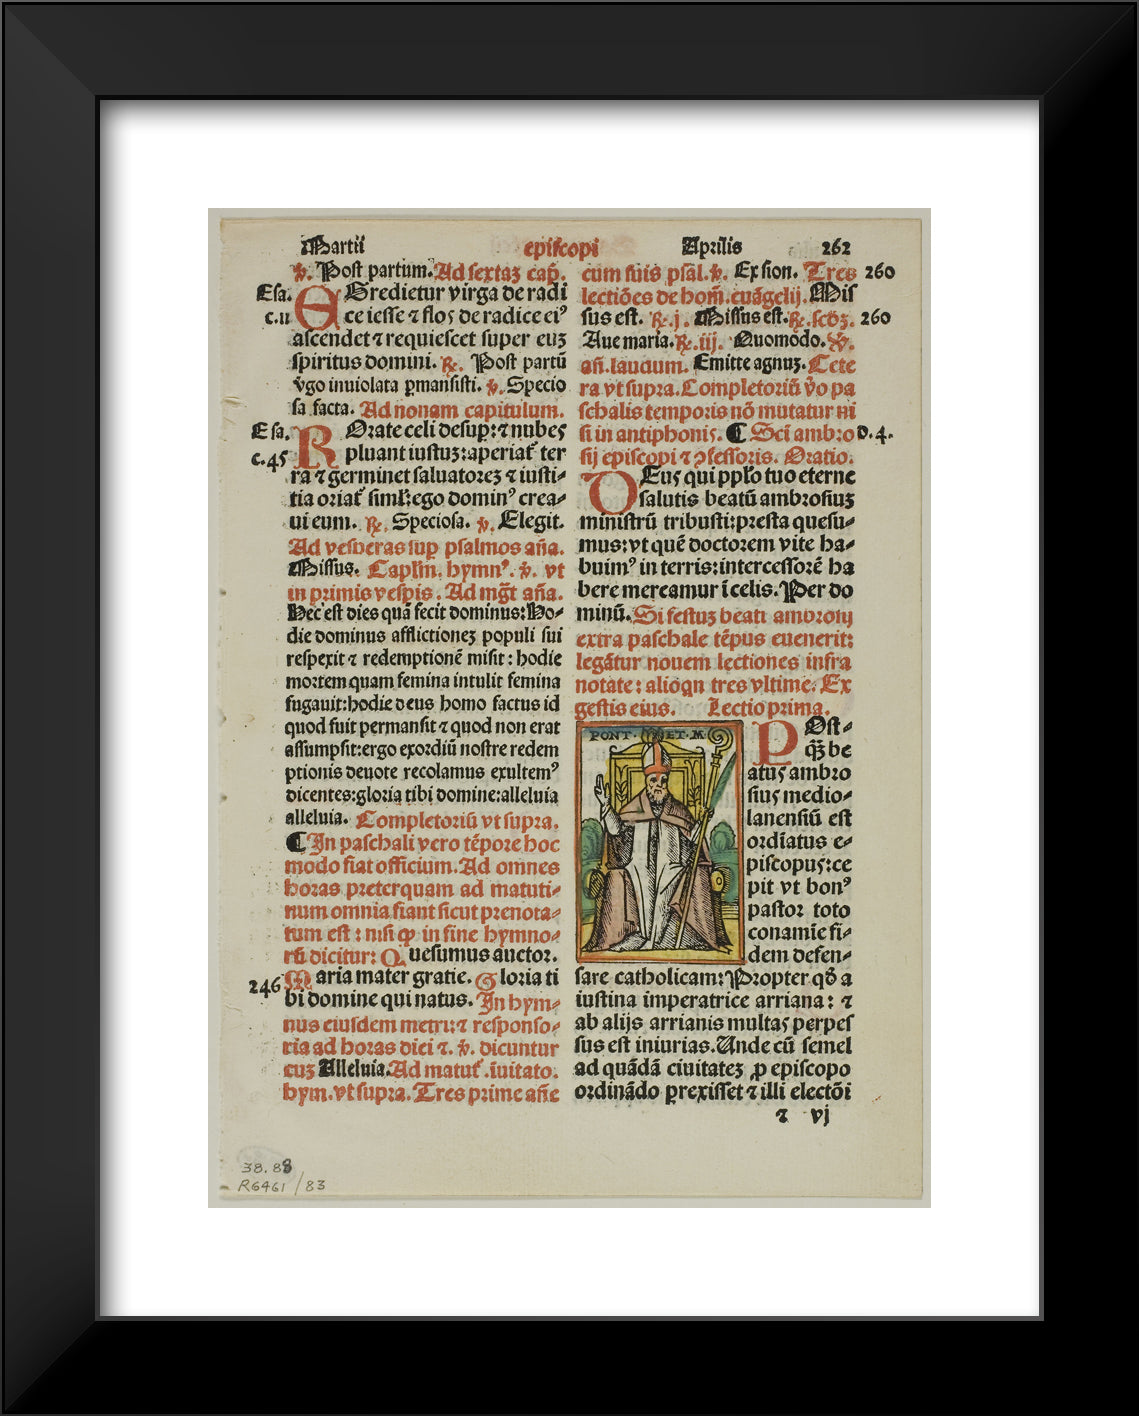 Martii episcopi Aprilis 262
℣. Post partum. Ad sextaʒ cap̄.
Esa. EGredietur virga de radi
c.11 ce iesse ⁊ flos de radice eiꝰ
ascendet ⁊ requiescet super euʒ
spiritus domini. ℟. Post partū
v̄go inuiolata ꝑmansisti. ℣. Specio
sa facta. Ad nonam capitulum.
Esa. ROrate celi desuꝑ: ⁊ nubes
c.45 pluant iustuʒ: aperiat̄ ter
ra ⁊ germinet saluatoreʒ ⁊ iusti-
tia oriat̄ siml̕: ego dominꝰ crea-
ui eum. ℟. Speciosa. ℣. Elegit.
Ad vesperas suꝑ psalmos an̄a.
Missus. Capl̕m. hymnꝰ. ℣. vt
in primis vesꝑis. Ad mg̅t an̄a.
Hec est dies quā fecit dominus: Ho-
die dominus afflictioneʒ populi sui
respexit ⁊ redemptionē misit: hodie
mortem quam femina intulit femina
fugauit: hodie deus homo factus id
quod fuit permansit ⁊ quod non erat
assumpsit: ergo exordiū nostre redem
ptionis deuote recolamus exultemꝰ
dicentes: gloria tibi domine: alleluia
alleluia. Completoriū vt supra.
¶ In paschali vero tēpore hoc
modo fiat officium. Ad omnes
horas preterquam ad matuti-
num omnia fiant sicut prenota-
tum est: nisi ꝙ in fine hymno-
rū dicitur: Quesumus auctor.
246 Maria mater gratie. Gloria ti
bi domine qui natus. In hym-
nus eiusdem metri: ⁊ responso-
ria ad horas diei ⁊. ℣. dicuntur
cuʒ Alleluia. Ad matut̄. īuitato.
hym. vt supra. Tres prime an̄e
cum suis psal. ℣. Ex sion. Tres 260
lectiōes de hom̄. euāgelij. Mis
sus est. ℟. j. Missus est. ℟. scd̄ʒ. 260
Aue maria. ℟. iij. Quomodo. ℣.
an̄. laudum. Emitte agnuʒ. Cete
ra vt supra. Completoriū v̄o pa
schalis temporis nō mutatur ni
si in antiphonis. ¶ Sc̄i ambro D.4.
sij episcopi ⁊ ꝯfessoris. Oratio.
DEus qui ppl̕o tuo eterne
salutis beatū ambrosiuʒ
ministrū tribusti: presta quesu-
mus: vt quē doctorem vite ha-
buimꝰ in terris: intercessorē ha
bere mereamur ī celis. Per do
minū. Si festuʒ beati ambrosij
extra paschale tēpus euenerit:
legātur nouem lectiones infra
notate: alioqn̄ tres vltime. Ex
gestis eius. Lectio prima.
PONT. ET. M.
POst-
qʒ̄ be
atus ambro
sius medio-
lanensiū est
ordīatus e-
piscopus: ce
pit vt bonꝰ
pastor toto
conamīe fi-
dem defen-
sare catholicam: Propter qd̄ a
iustina imperatrice arriana: ⁊
ab alijs arrianis multas perpes
sus est iniurias. Unde cū semel
ad quādā ciuitateʒ ꝓ episcopo
ordināndo ꝑrexisset ⁊ illi electōi
⁊ vj
38.88
R6461/83